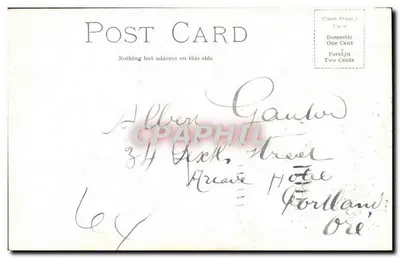 POST CARD
Nothing but address on this side
Place Stamp
Here
Domestic
One Cent
Foreign
Two Cents
CPAPHIL
Albert
34 Sixth Street
Hotel
Portland
Ore
64